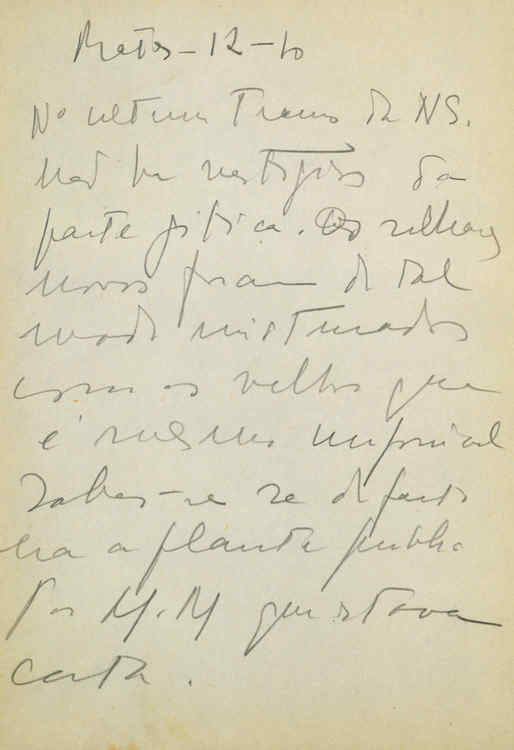 Matos - 12 - 10
No ultimo Tramo da NS.
não ha vestigios da
parte gotica. Os silhares
novos foram de tal
modo misturados
com os velhos que
é mesmo impossivel
Saber-se se de facto
a planta publi
por M. M que estava
certa.